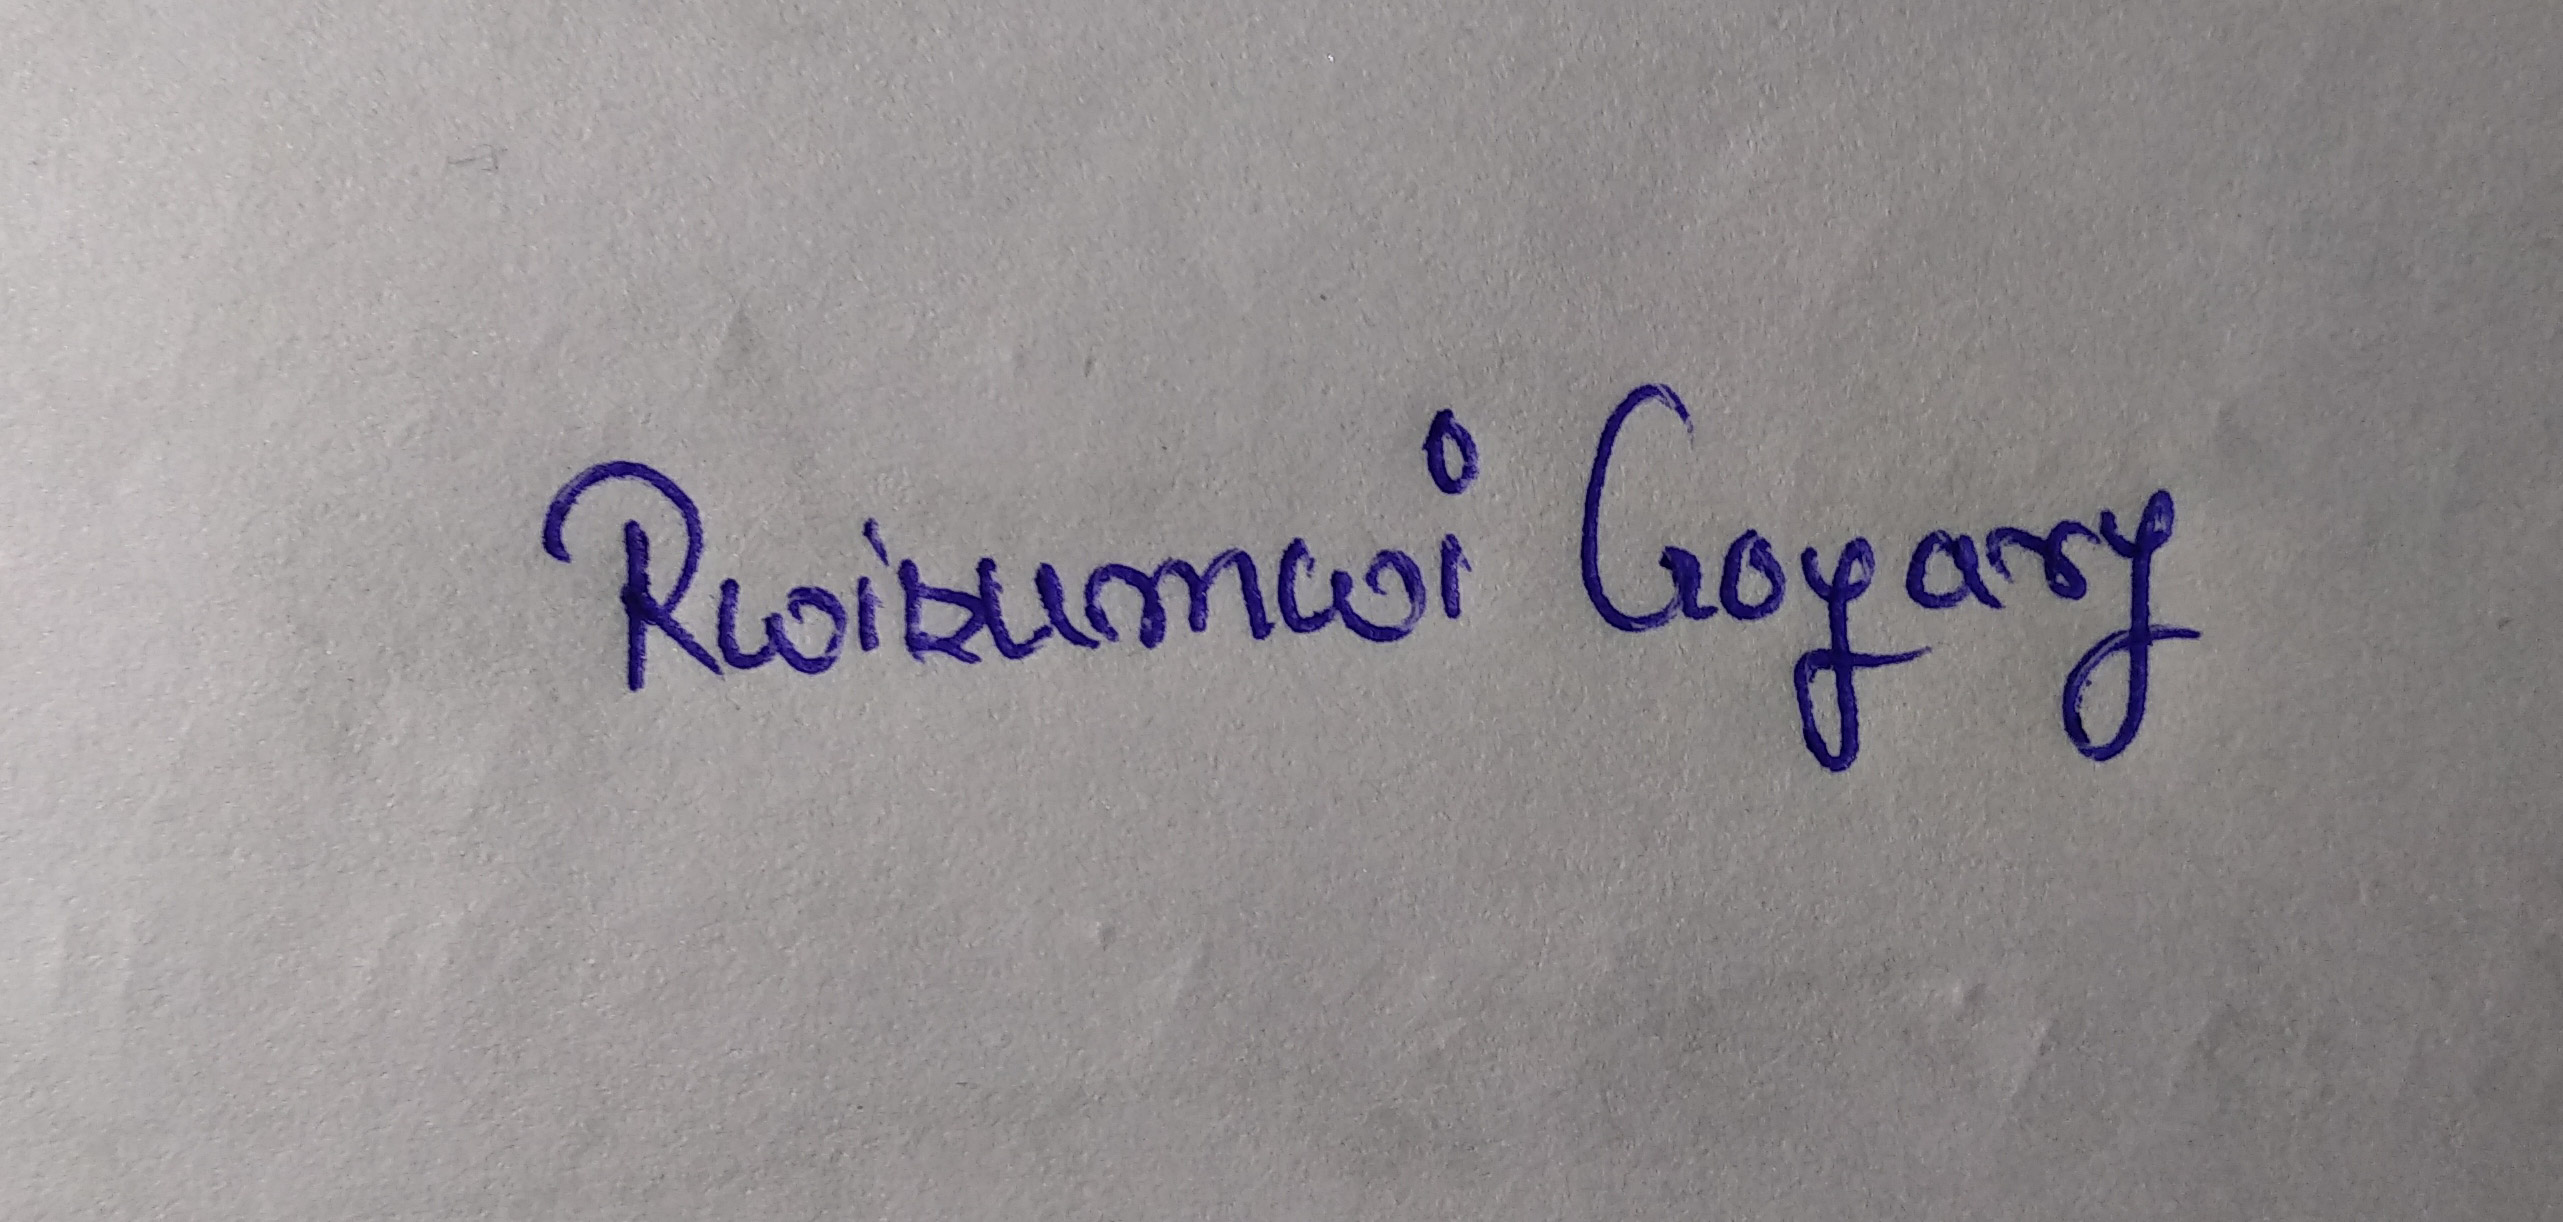 Rwizumwi Goyary